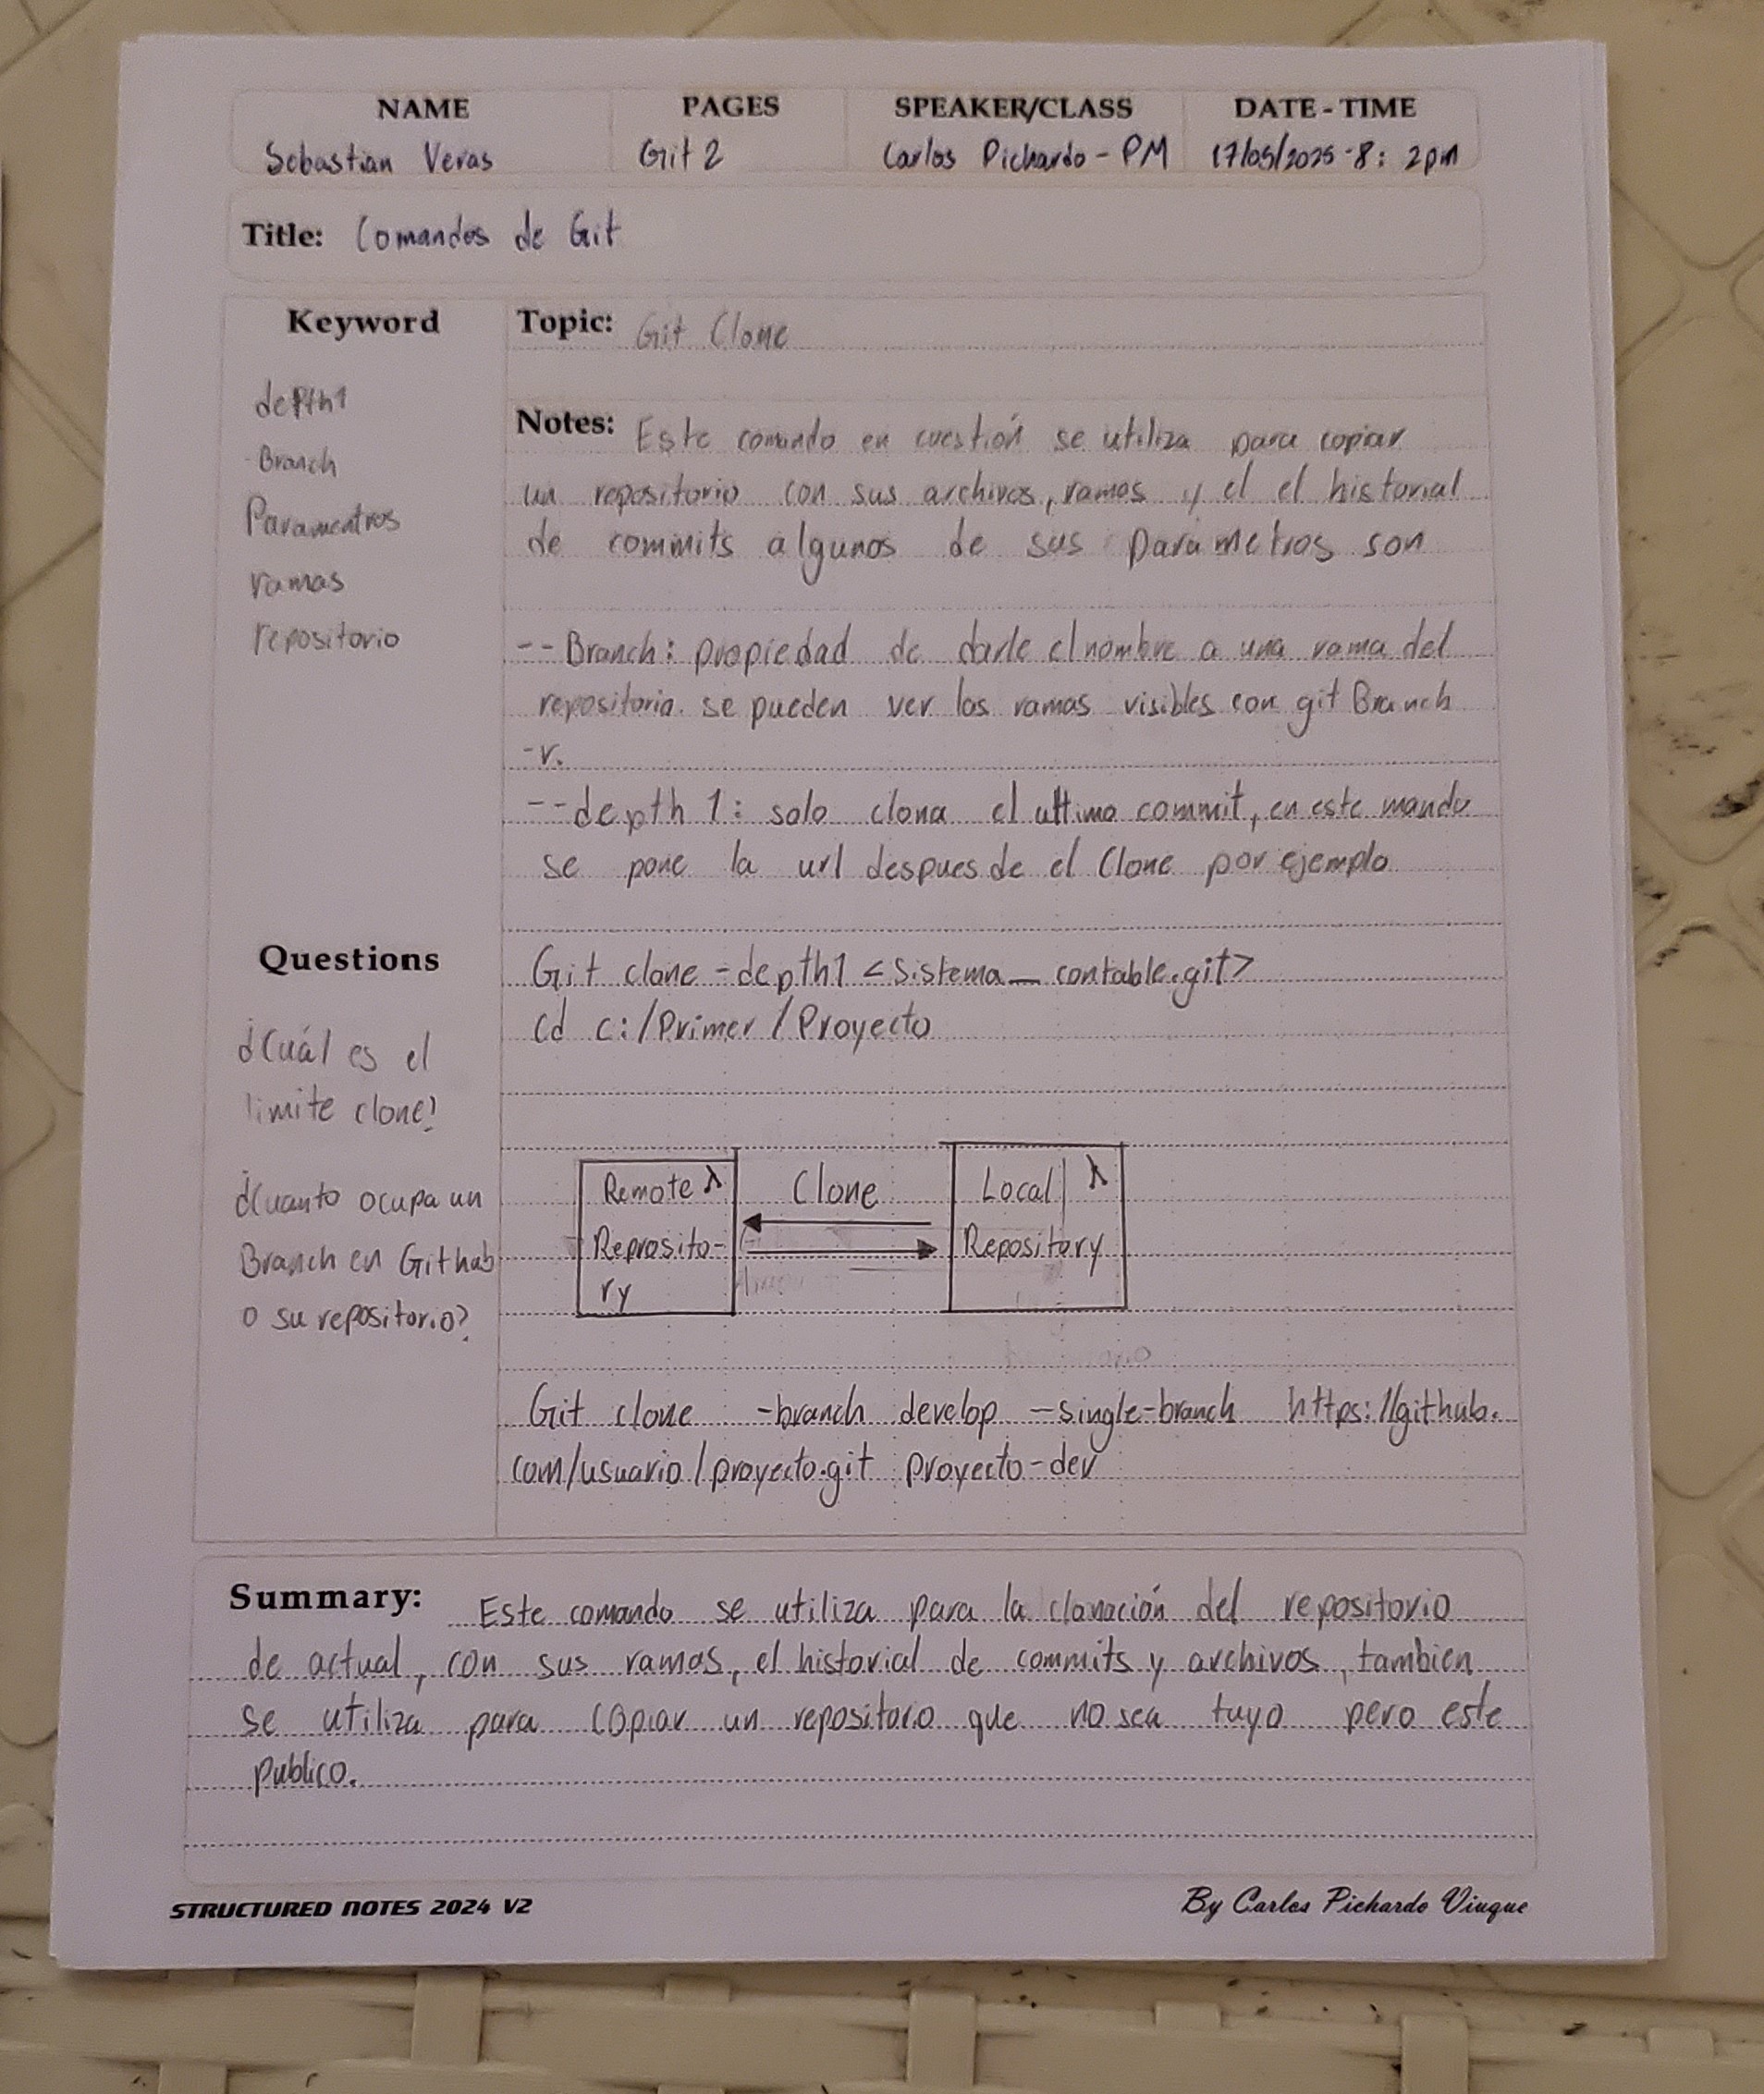 NAME
PAGES
SPEAKER/CLASS
DATE-TIME
Sebastian Veras
Git 2
Carlos Pichardo - PM
17/05/2025 - 8: 2pm
Title: Comandos de Git
Keyword
depth1
Branch
Paramentros
ramas
repositorio
Topic: Git Clone
Notes: Este comando en cuestión se utiliza para copiar
un repositorio con sus archivos, ramas y el el historial
de commits algunos de sus parametros son
--Branch: propiedad de darle el nombre a una rama del
repositorio. se pueden ver las ramas visibles con git Branch
-v.
--depth 1: solo clona el ultimo commit, en este mando
se pone la url despues de el Clone por ejemplo
Git clone -depth1 <sistema_contable.git>
cd c:/Primer/Proyecto
Questions
¿Cuál es el
limite clone?
¿Cuanto ocupa un
Branch en Github
o su repositorio?
Remote λ
Reprosito-
ry
Clone
Local λ
Repository
Git clone -branch develop -single-branch https://github.
com/usuario/proyecto.git proyecto-dev
Summary: Este comando se utiliza para la clonación del repositorio
de actual, con sus ramas, el historial de commits y archivos, tambien
se utiliza para copiar un repositorio que no sea tuyo pero este
publico.
STRUCTURED NOTES 2024 V2
By Carlos Pichardo Viuque